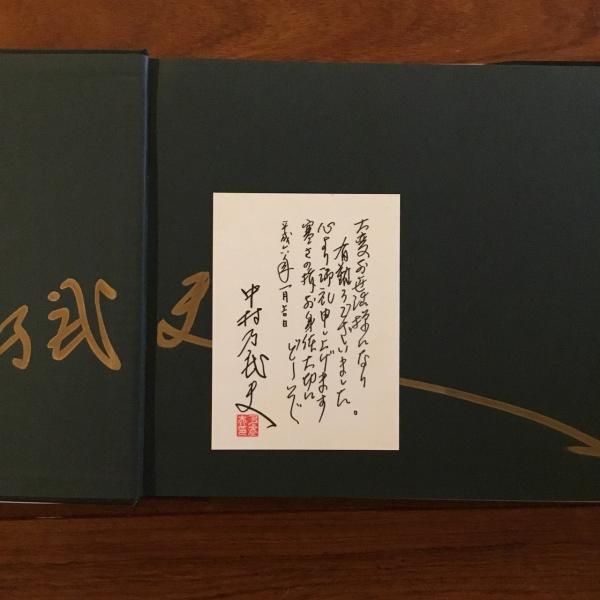 大変お世話様になり
有難うございました。
心より御礼申し上げます
寒さの折お身体大切に
どうぞ
平成六年一月吉日
中村乃武夫
乃武夫